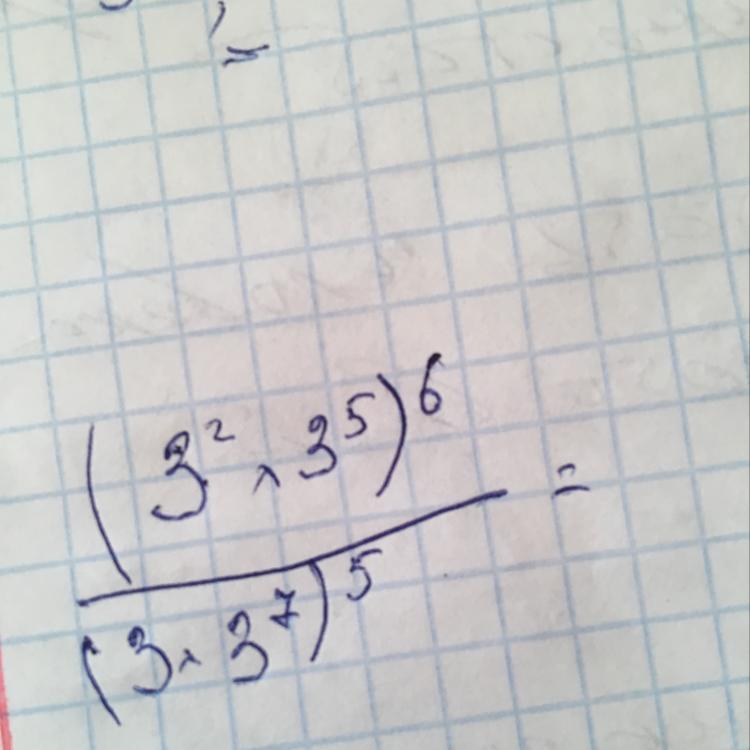 =
(3² × 3⁵)⁶ =
(3 × 3⁷)⁵